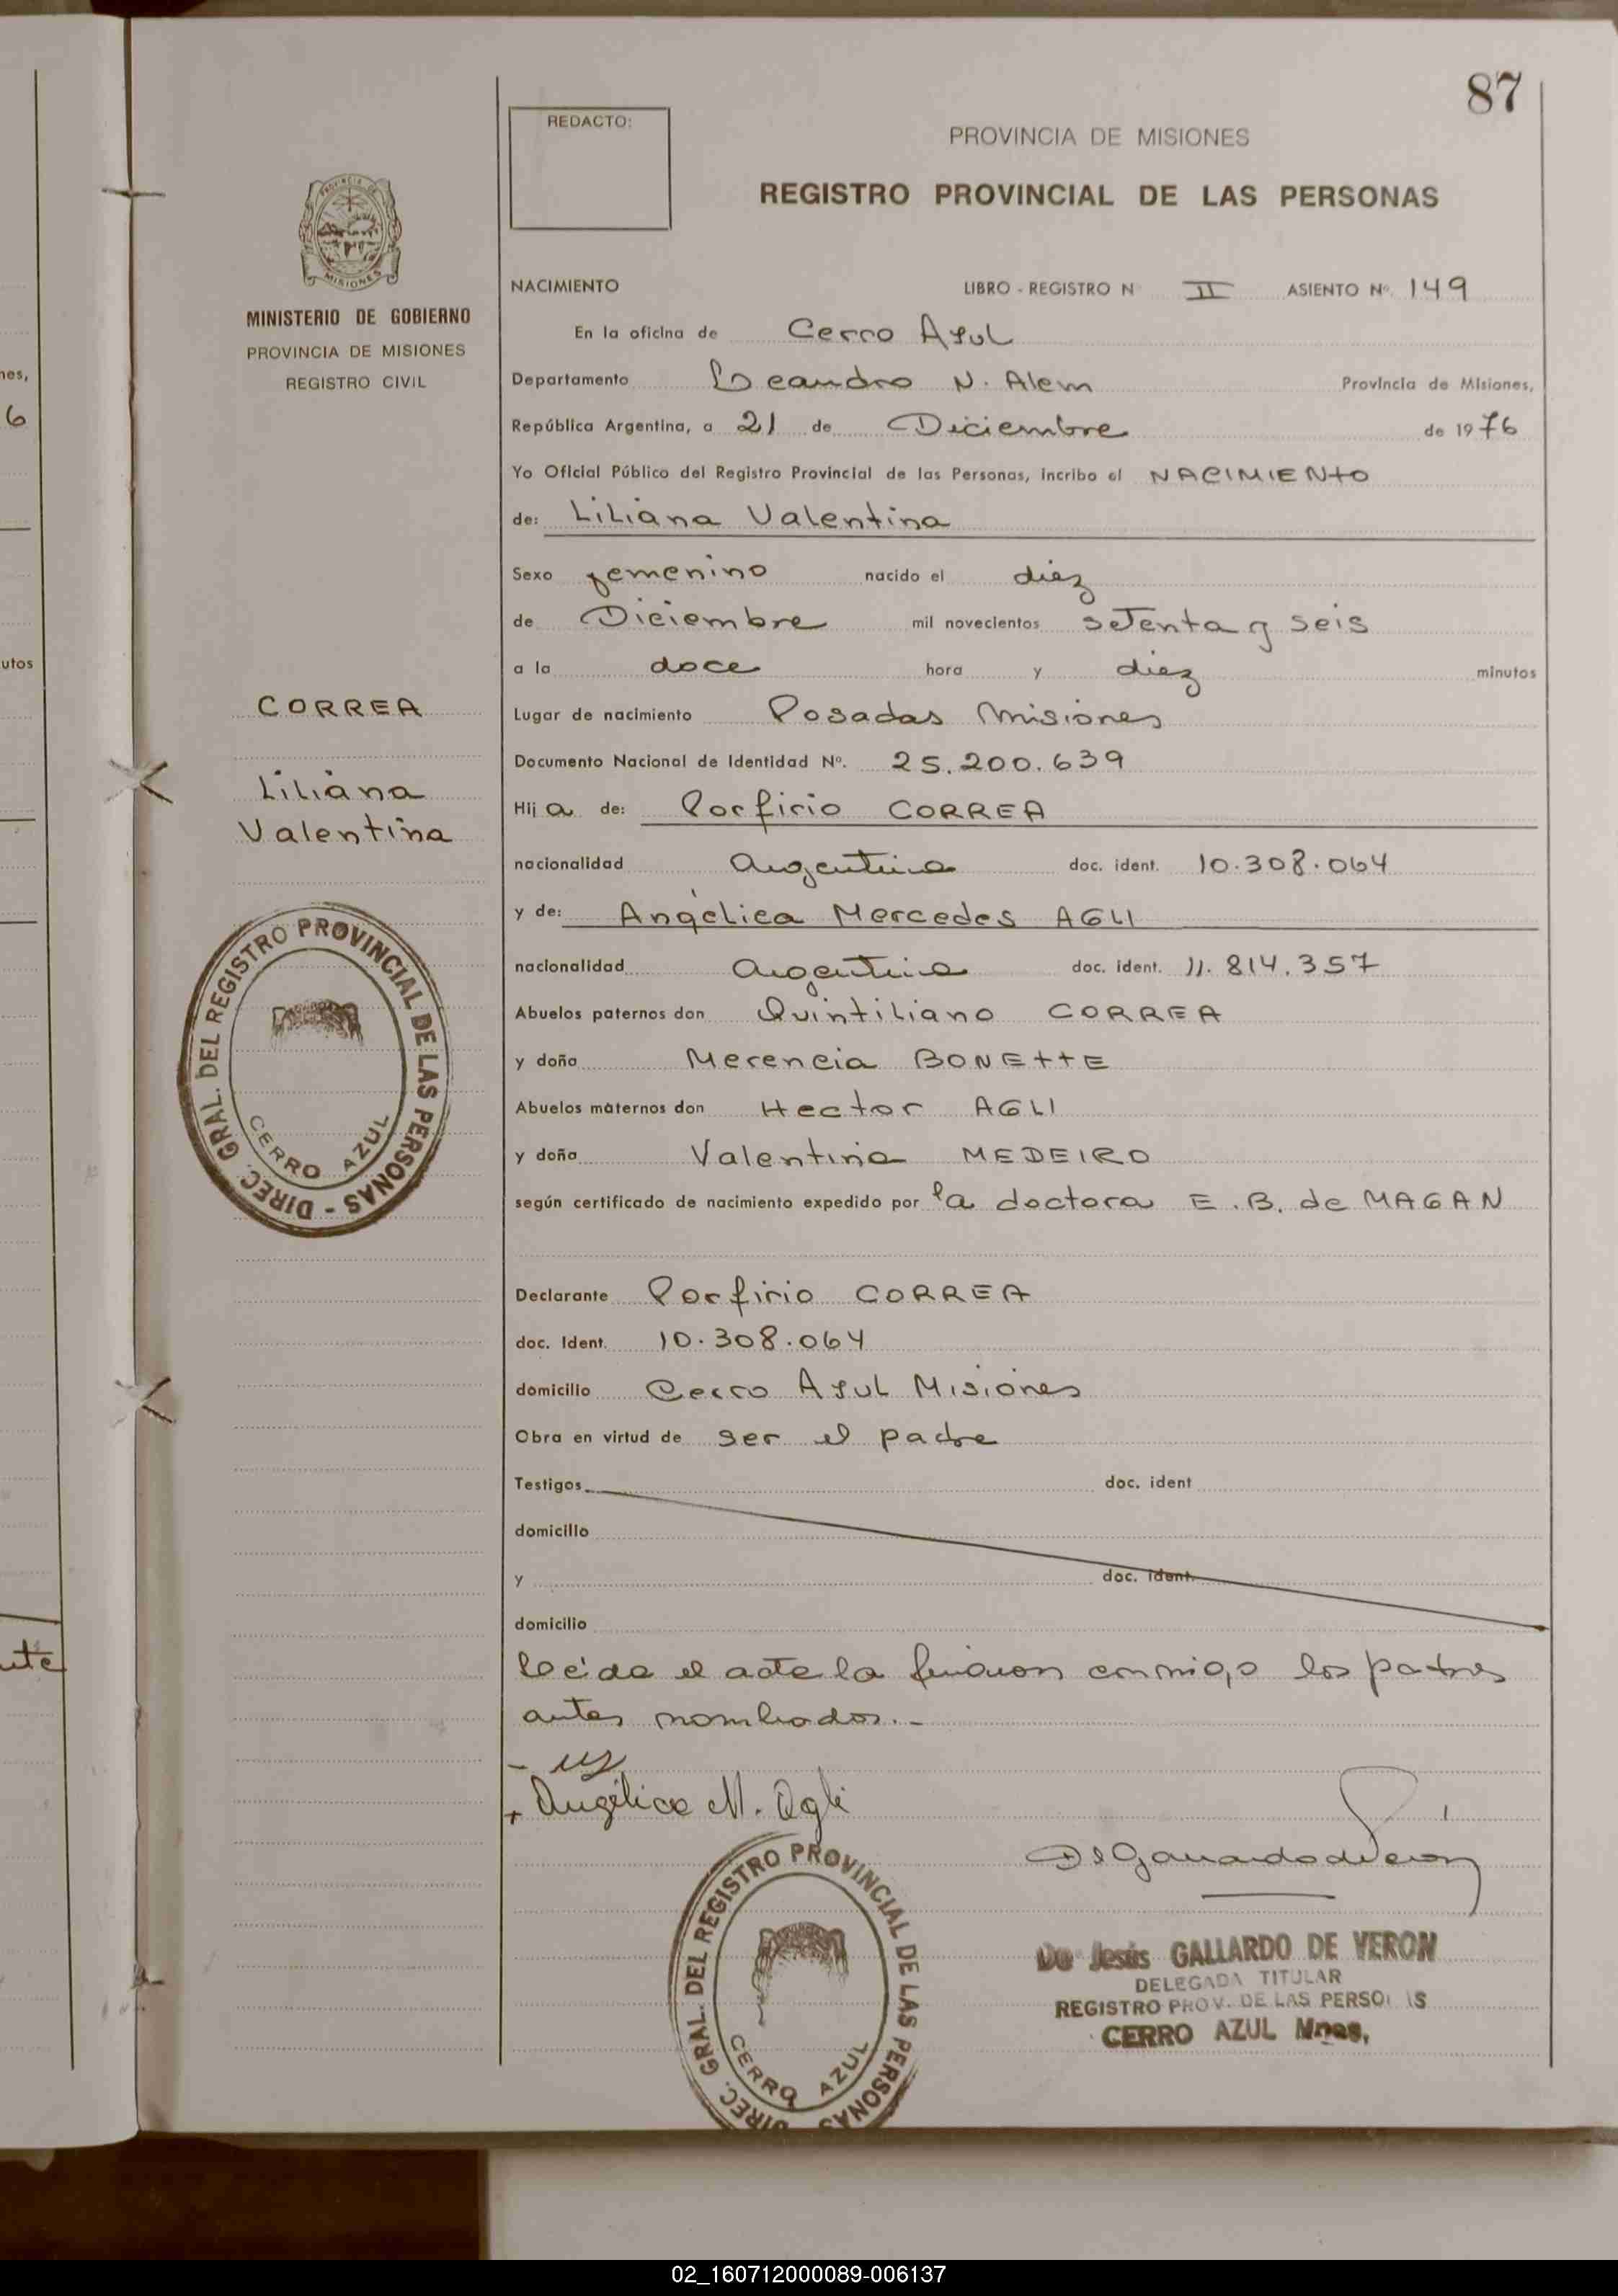 87
REDACTO:
PROVINCIA DE MISIONES
REGISTRO PROVINCIAL DE LAS PERSONAS
PROVINCIA DE
MISIONES
MINISTERIO DE GOBIERNO
PROVINCIA DE MISIONES
REGISTRO CIVIL
nes,
6
utos
ute
NACIMIENTO LIBRO - REGISTRO N II ASIENTO Nº. 149
En la oficina de Cerro Azul
Departamento Leandro N. Alem Provincia de Misiones,
República Argentina, a 21 de Diciembre de 1976
Yo Oficial Público del Registro Provincial de las Personas, incribo el NACIMIENTO
de: Liliana Valentina
Sexo femenino nacido el diez
de Diciembre mil novecientos setenta y seis
a la doce hora y diez minutos
Lugar de nacimiento Posadas Misiones
Documento Nacional de Identidad Nº. 25.200.639
Hija de: Porfirio CORREA
nacionalidad Argentina doc. ident. 10.308.064
y de: Angélica Mercedes AGLI
nacionalidad Argentina doc. ident. 11.814.357
Abuelos paternos don Quintiliano CORREA
y doña Merencia BONETTE
Abuelos maternos don Hector AGLI
y doña Valentina MEDEIRO
según certificado de nacimiento expedido por la doctora E.B. de MAGAN
Declarante Porfirio CORREA
doc. Ident. 10.308.064
domicilio Cerro Azul Misiones
Obra en virtud de ser el padre
Testigos doc. ident
domicilio
y doc. ident.
domicilio
Leida el acta la firman conmigo los padres
antes nombrados.-
CORREA
Liliana
Valentina
DIREC. GRAL. DEL REGISTRO PROVINCIAL DE LAS PERSONAS -
CERRO AZUL
Angélica M. Agli
DIREC. GRAL. DEL REGISTRO PROVINCIAL DE LAS PERSONAS
CERRO AZUL
De Jesús GALLARDO DE VERON
DELEGADA TITULAR
REGISTRO PROV. DE LAS PERSO IS
CERRO AZUL Mnes,
02_160712000089-006137